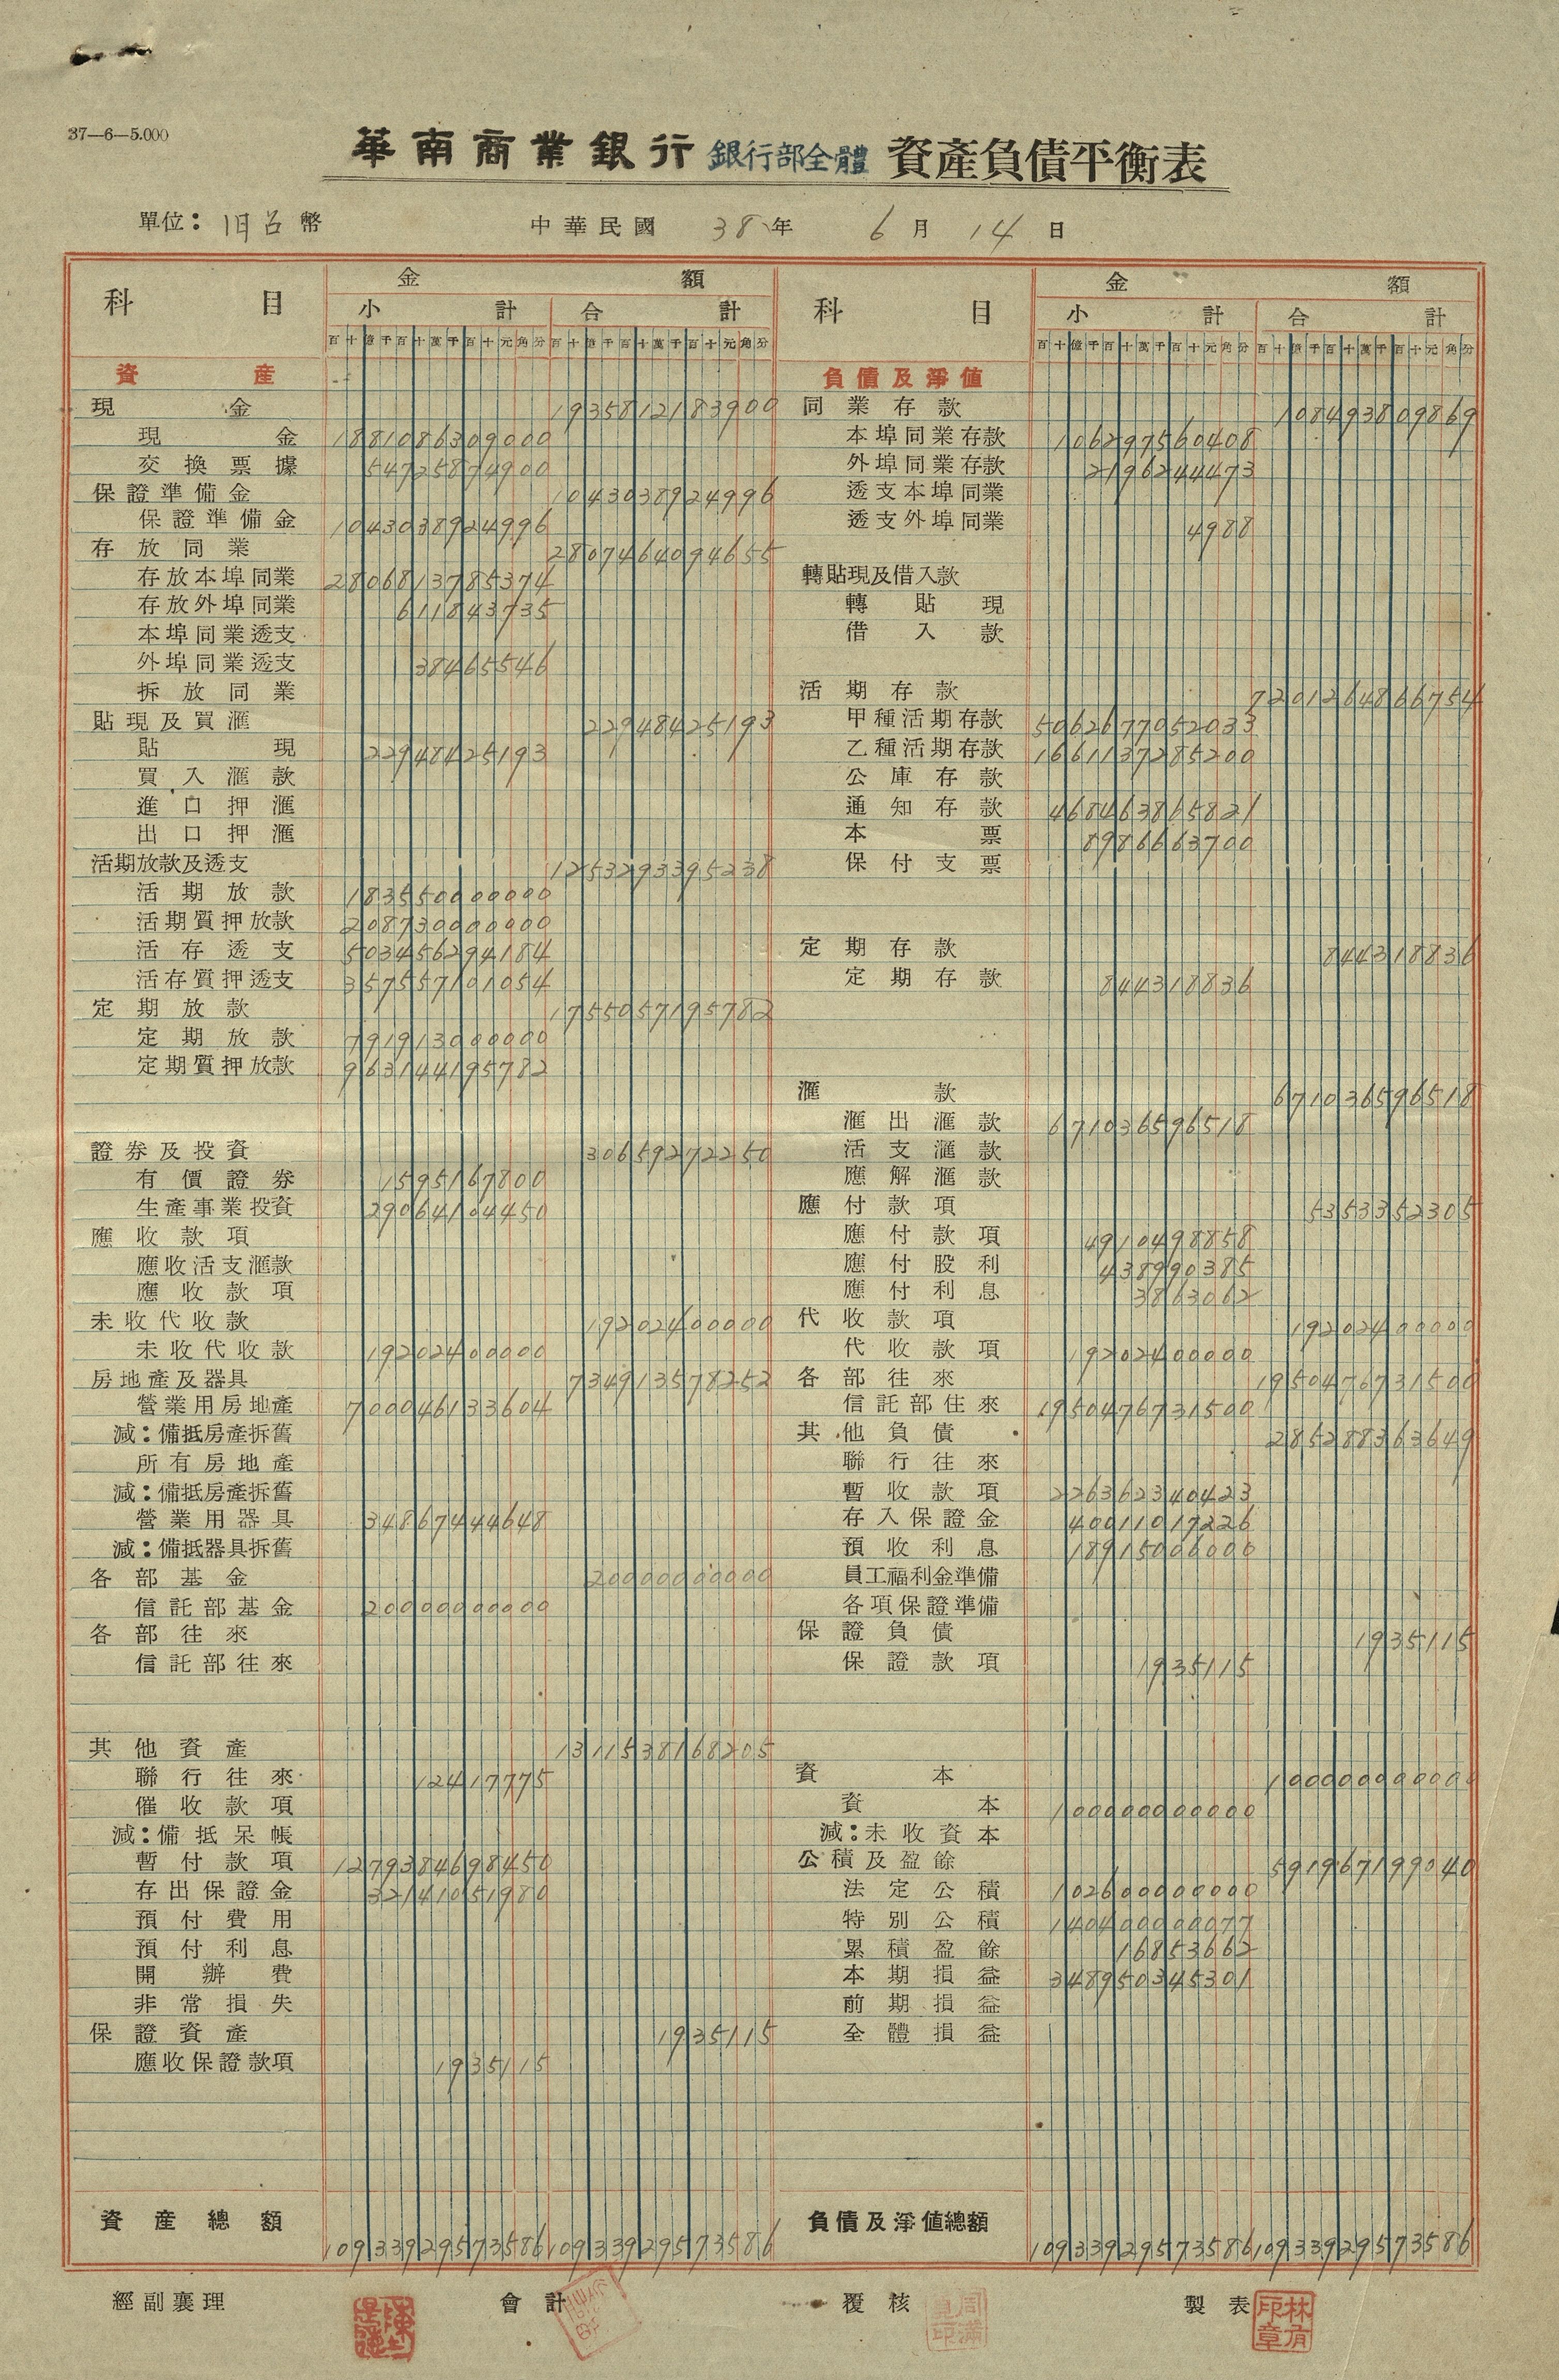 37—6—5.000
華南商業銀行 銀行部全體 資產負債平衡表
單位：旧台幣 中華民國 38年 6月 14日
科目 金額 科目 金額
小計 合計 小計 合計
百十億千百十萬千百十元角分 百十億千百十萬千百十元角分 百十億千百十萬千百十元角分 百十億千百十萬千百十元角分
資產 負債及淨值
現金 1935812183900 同業存款 108493809869
現金 1881086309000 本埠同業存款 106297560408
交換票據 54725874900 外埠同業存款 2196244473
保證準備金 1043038924996 透支本埠同業
保證準備金 1043038924996 透支外埠同業 4988
存放同業 2807464094655
存放本埠同業 2806813785374 轉貼現及借入款
存放外埠同業 611843735 轉貼現
本埠同業透支 借入款
外埠同業透支 38465546
拆放同業 活期存款 7201264866754
貼現及買滙 22948425193 甲種活期存款 5062677052033
貼現 22948425193 乙種活期存款 1661137285200
買入滙款 公庫存款
進口押滙 通知存款 468463865821
出口押滙 本票 8986663700
活期放款及透支 1253293395238 保付支票
活期放款 183550000000
活期質押放款 208730000000
活存透支 503456294184 定期存款 844318836
活存質押透支 357557101054 定期存款 844318836
定期放款 1755057195782
定期放款 791913000000
定期質押放款 963144195782
滙款 671036596518
滙出滙款 671036596518
證券及投資 30659272250 活支滙款
有價證券 1595167800 應解滙款
生產事業投資 29064104450 應付款項 5353352305
應收款項 應付款項 4910498858
應收活支滙款 應付股利 438990385
應收款項 應付利息 3863062
未收代收款 19202400000 代收款項 19202400000
未收代收款 19202400000 代收款項 19202400000
房地產及器具 734913578252 各部往來 1950476731500
營業用房地產 700046133604 信託部往來 1950476731500
減：備抵房產拆舊 其他負債 285288363649
所有房地產 聯行往來
減：備抵房產拆舊 暫收款項 226362340423
營業用器具 34867444648 存入保證金 40011017226
減：備抵器具拆舊 預收利息 18915006000
各部基金 20000000000 員工福利金準備
信託部基金 20000000000 各項保證準備
各部往來 保證負債 1935115
信託部往來 保證款項 1935115
其他資產 1311538168205
聯行往來 12417775 資本 100000000000
催收款項 資本 100000000000
減：備抵呆帳 減：未收資本
暫付款項 1279384698450 公積及盈餘 591967199040
存出保證金 32141051980 法定公積 102600000000
預付費用 特別公積 140400000077
預付利息 累積盈餘 16853662
開辦費 本期損益 348950345301
非常損失 前期損益
保證資產 1935115 全體損益
應收保證款項 1935115
資產總額 10933929573586 10933929573586 負債及淨值總額 10933929573586 10933929573586
經副襄理 會計 覆核 製表 林有印章